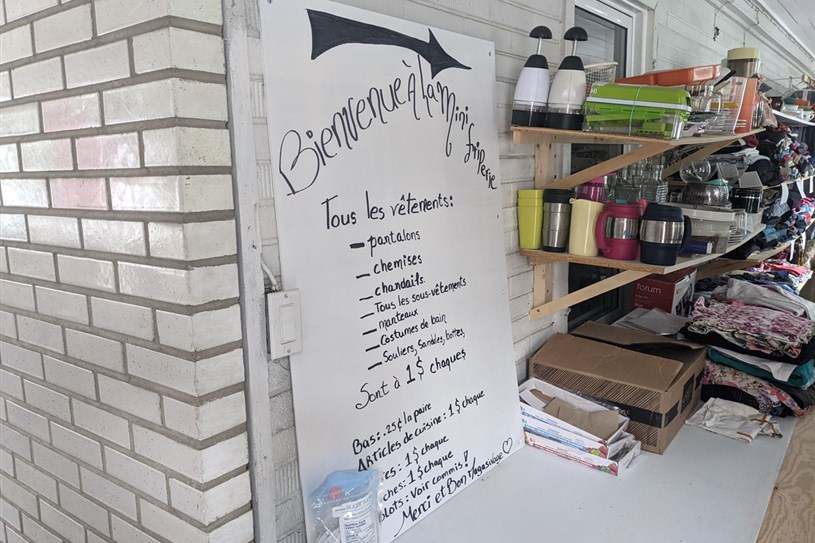 Bienvenue À la mini friperie
Tous les vêtements:
- pantalons
- chemises
- chandails
- Tous les sous-vêtements
- manteaux
- Costumes de bain
- Souliers, Sandales, bottes,
Sont à 1$ chaques
Bas: .25¢ la paire
Articles de cuisine: 1$ chaque
es: 1$ chaque
ches: 1$ chaque
lots: Voir commis!
Merci et Bon Magasinage ♡
forum